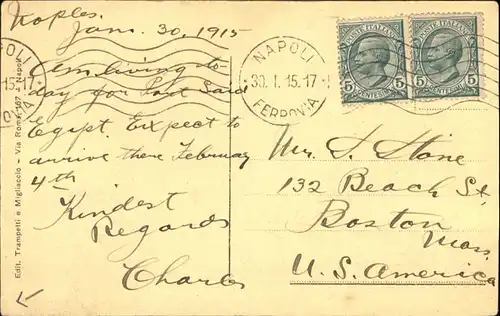 Naples.
Jan. 30, 1915
Am living to-
day for Port Said
Egypt. Expect to
arrive there February
4th
Kindest
Regards
Charles
NAPOLI
30.1.15.17
FERROVIA
POSTE ITALIANE
5 CENTESIMI 5
POSTE ITALIANE
5 CENTESIMI 5
Mr. S. Stone
132 Beach St,
Boston
Mass.
U.S. America
Edit. Trampetti e Migliaccio - Via Roma, 167 - Napoli